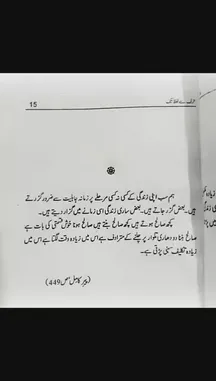 حرف سے لفظ تک 15
ہم سب اپنی زندگی کے کسی نہ کسی مرحلے پر زمانہ جاہلیت سے ضرور گزرتے
ہیں۔ بعض گزر جاتے ہیں۔ بعض ساری زندگی اسی زمانے میں گزار دیتے ہیں۔
کچھ صالح ہوتے ہیں کچھ صالح بنتے ہیں صالح ہونا خوش قسمتی کی بات ہے
صالح بننا دو دھاری تلوار پر چلنے کے مترادف ہے اس میں زیادہ وقت لگتا ہے اس میں
زیادہ تکلیف سہنی پڑتی ہے۔
(پیر کامل ص 449)